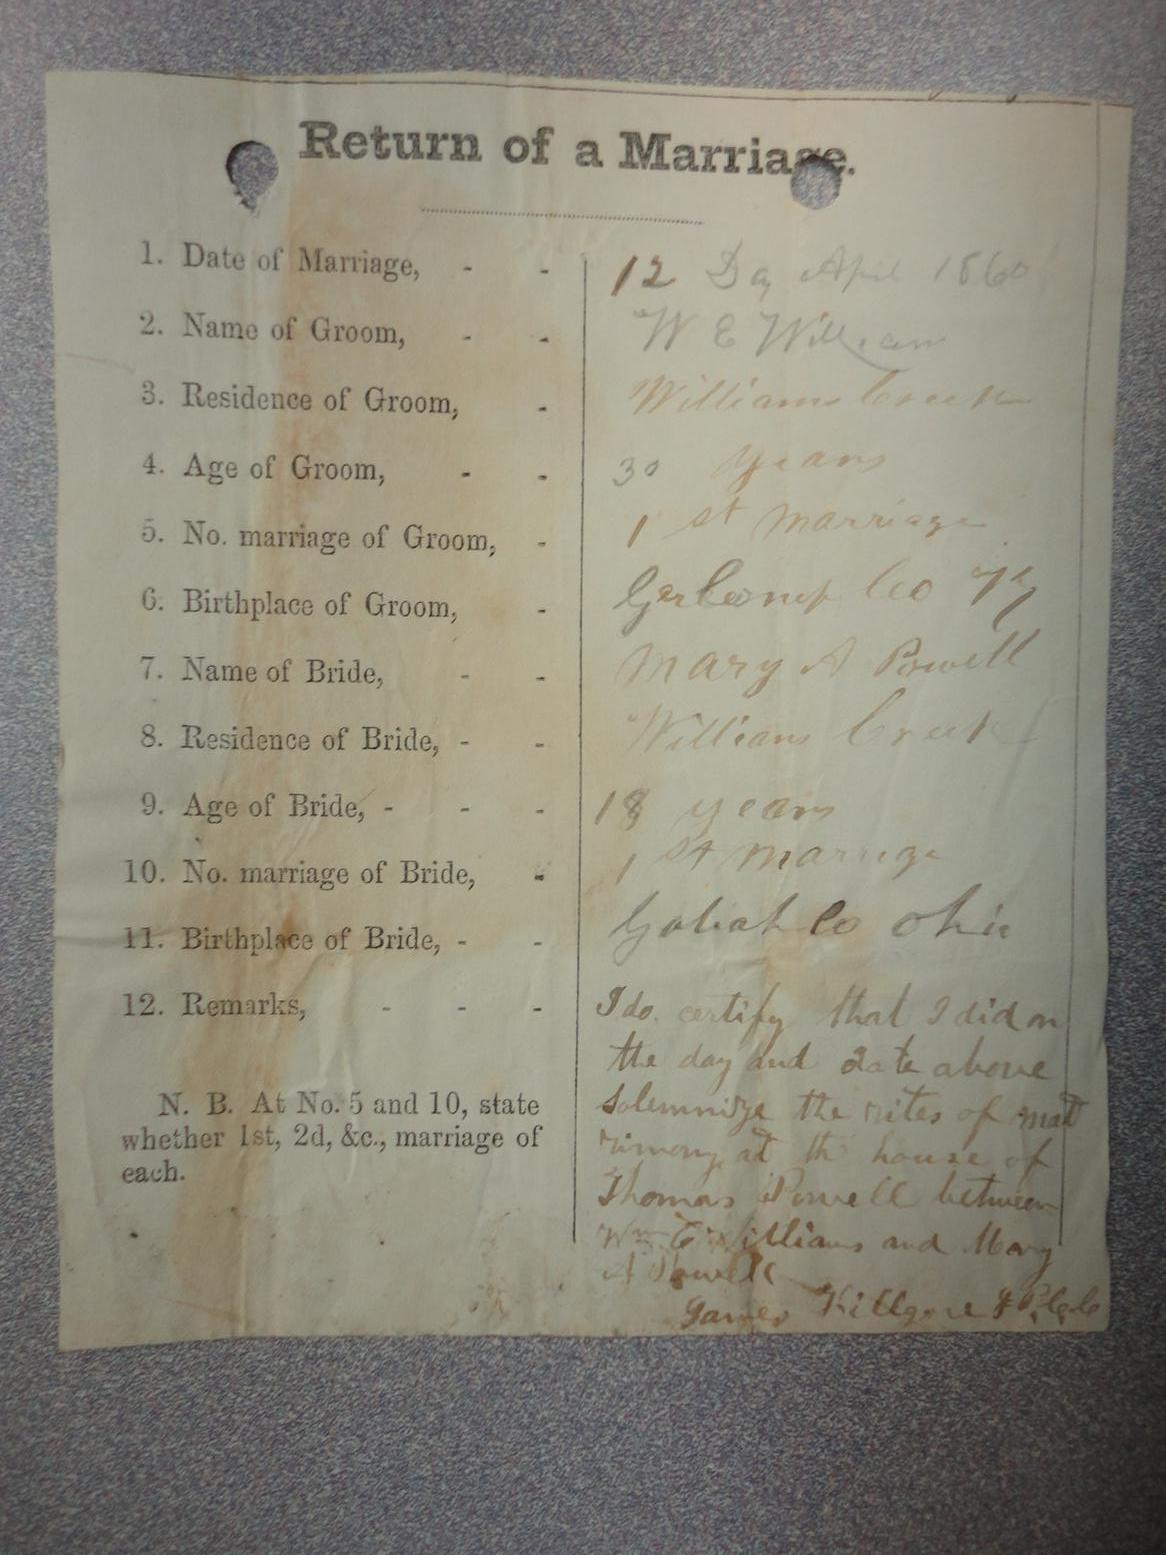 Return of a Marriage.
1. Date of Marriage, - - 12 Day April 1860
2. Name of Groom, - - W E William
3. Residence of Groom, - Williams Creek
4. Age of Groom, - - 30 years
5. No. marriage of Groom, - 1 st marriage
6. Birthplace of Groom, - Co Ky
7. Name of Bride, - - Mary A Powell
8. Residence of Bride, - - Williams Creek
9. Age of Bride, - - - 18 years
10. No. marriage of Bride, - 1 st marrige
11. Birthplace of Bride, - - Co Ohio
12. Remarks, - - - I do. certify that I did on
the day and date above
N. B. At No. 5 and 10, state
whether 1st, 2d, &c., marriage of
each.
solemnize the rites of mat
rimony at th house of
Thomas Powell between
Wm E Williams and Mary
A Powell
James Killgore J P